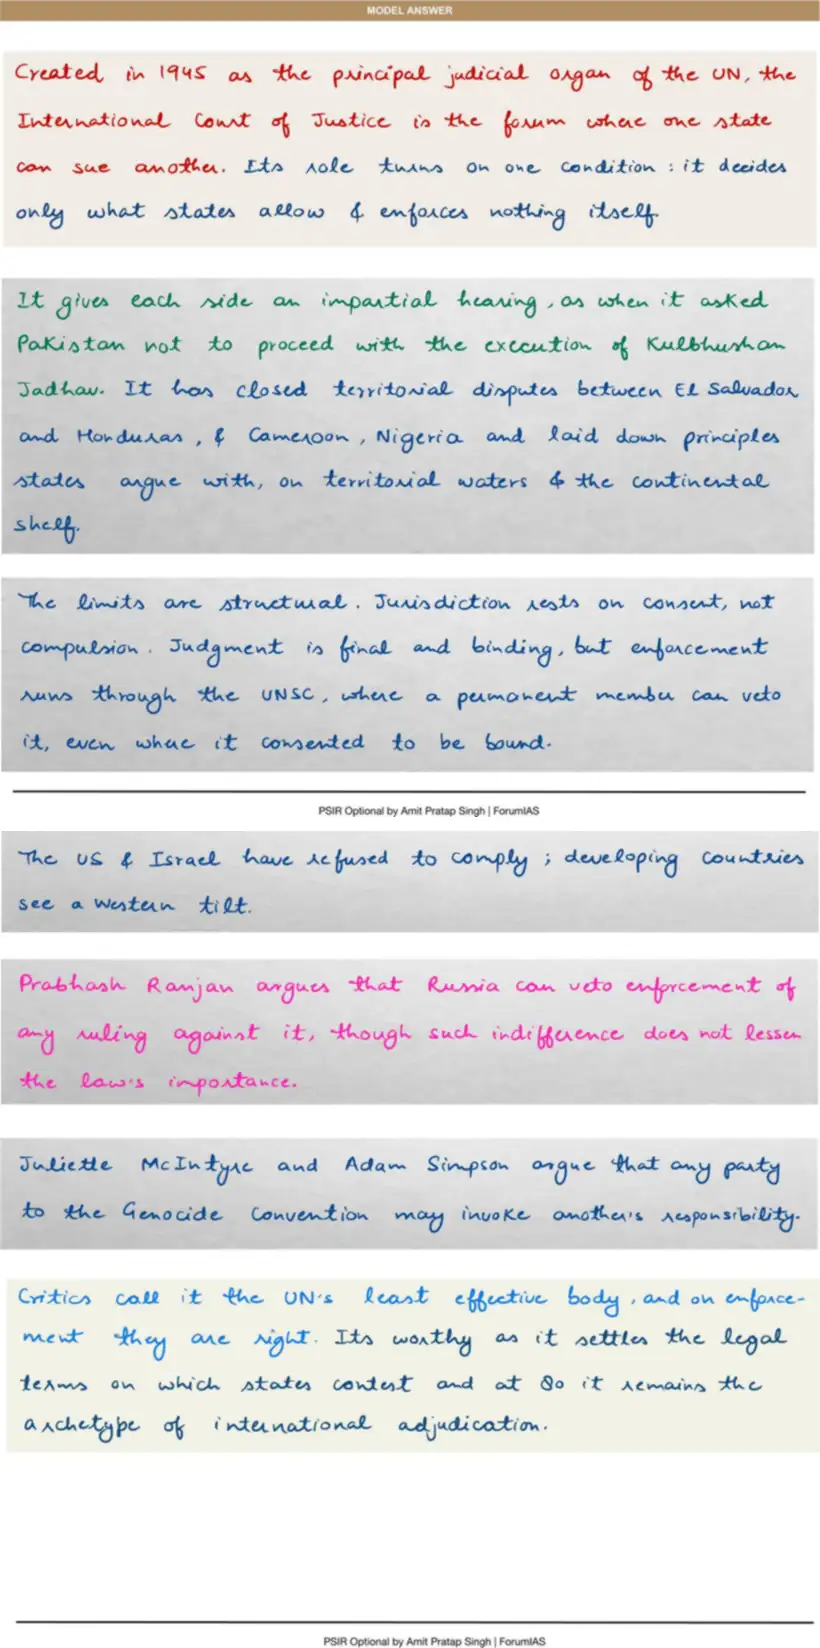 MODEL ANSWER
Created in 1945 as the principal judicial organ of the UN, the
International Court of Justice is the forum where one state
can sue another. Its role turns on one condition : it decides
only what states allow & enforces nothing itself.
It gives each side an impartial hearing, as when it asked
Pakistan not to proceed with the execution of Kulbhushan
Jadhav. It has closed territorial disputes between El Salvador
and Honduras, & Cameroon, Nigeria and laid down principles
states argue with, on territorial waters & the continental
shelf.
The limits are structural. Jurisdiction rests on consent, not
compulsion. Judgment is final and binding, but enforcement
runs through the UNSC, where a permanent member can veto
it, even where it consented to be bound.
PSIR Optional by Amit Pratap Singh | ForumIAS
The US & Israel have refused to comply ; developing countries
see a Western tilt.
Prabhash Ranjan argues that Russia can veto enforcement of
any ruling against it, though such indifference does not lessen
the law's importance.
Juliette McIntyre and Adam Simpson argue that any party
to the Genocide Convention may invoke another's responsibility.
Critics call it the UN's least effective body, and on enforce-
ment they are right. Its worthy as it settles the legal
terms on which states contest and at 80 it remains the
archetype of international adjudication.
PSIR Optional by Amit Pratap Singh | ForumIAS